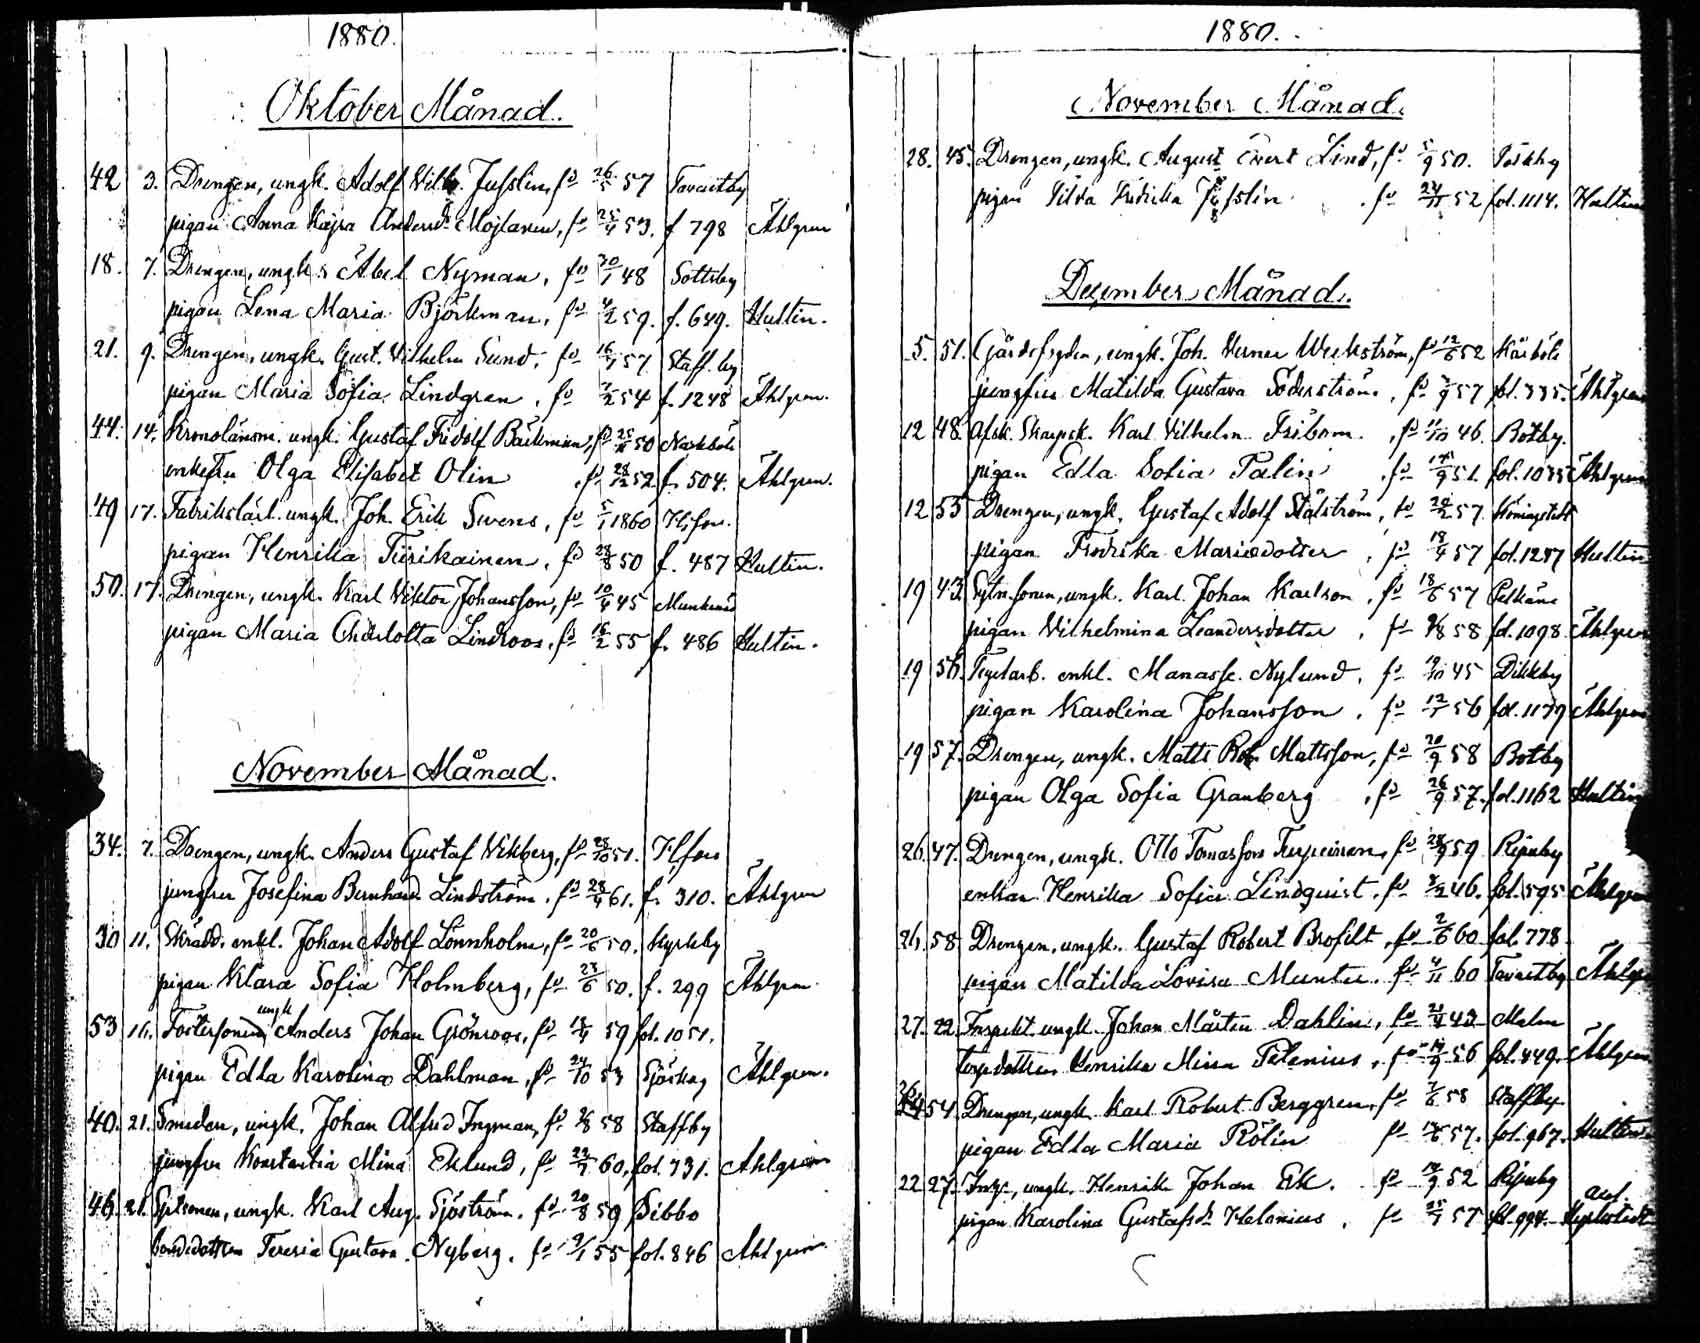 1880.
Oktober Månad.
42 3. Drengen, ungk. Adolf Vilh. Jusslin, fd 26/5 57 Tavastby
pigan Anna Kajsa Andersdr Mojlanen, fd 25/4 53. f 798 Åhlgren
18. 7. Drengen, ungk. Abel Nyman, fd 30/1 48 Sottsby
pigan Lena Maria Björkman, fd 4/2 59. f. 649. Hultin.
21. 9. Drengen, ungk. Gust. Vilhelm Sund, fd 16/7 57 Staff.by
pigan Maria Sofia Lindgren, fd 7/2 54 f. 1248 Åhlgren.
44. 14. Kronolänsm. ungk. Gustaf Fridolf Bäckman, fd 50
enkefru Olga Elisabet Olin fd 28/12 52 f. 504. Åhlgren.
49 17. Fabrikslärl. ungk. Joh. Erik Svens, fd 5/1 1860 H:fors.
pigan Henrika Tiirikainen, fd 28/8 50 f. 487 Hultin.
50. 17. Drengen, ungk. Karl Viktor Johansson, fd 10/4 45
pigan Maria Charlotta Lindroos, fd 16/2 55 f. 486 Hultin.
November Månad.
34. 7. Drengen, ungk. Anders Gustaf Vikberg, fd 28/10 51. H:fors
jungfrun Josefina Bernhard. Lindström, fd 28/4 61. f. 310. Åhlgren
30 11. Skradd. enkl. Johan Adolf Lönnholm, fd 20/6 50. Kyrkby
pigan Klara Sofia Holmberg, fd 23/6 50. f. 299 Åhlgren.
53 16. Fostersonen ungk Anders Johan Grönroos, fd 59 fol. 1051.
pigan Edla Karolina Dahlman, fd 24/10 53 Sjöskog Åhlgren.
40. 21. Smeden, ungk. Johan Alfred Ingman, fd 58 Staffby
jungfrun Konstantia Mina Eklund, fd 22/7 60, fol. 731. Ahlgren
46. 21. ungk. Karl Aug. Sjöström. fd 20/8 59 Sibbo
Teresia Gustava Nyberg. fd 55 fol. 846 Ahlgren
1880.
November Månad.
28. 45. Drengen, ungk. August Evert Lind, fd 5/9 50.
pigan Fredrika Jusslin fd 52 fol. 1114. Hultin
December Månad.
5. 51. ungk. Joh. Verner Weckström, fd 12/6 52 Kärböle
jungfru Matilda Gustava Söderström, fd 57 fol. 335. Åhlgren
12 48. Karl Vilhelm Friberm. fd 46. Botby.
pigan Edla Sofia Palin fd 51. Åhlgren
12 55 Drengen, ungk. Gustaf Adolf Stålström, fd 57
pigan Fredrika Mariædotter, fd 57 fol. 1287 Hultin
19 43. ungk. Karl Johan Karlson, fd 18/6 57 Pelkäne
pigan Vilhelmina Leandersdotter, fd 58 fol. 1098. Åhlgren
19 56. Tegelarb. enkl. Manasse Nylund, fd 45 Dikkby
pigan Karolina Johansson, fd 12/7 56 fol. 1179 Åhlgren
19 57. Drengen, ungk. Matts Rob. Mattsson, fd 20/9 58 Botby
pigan Olga Sofia Granberg, fd 26/9 57. fol. 1162 Hultin
26. 47. Drengen, ungk. Otto Tomasson Turpeinen, fd 59 Ripuby
enkan Henrika Sofia Lindquist, fd 46. fol. 595 Åhlgren
26. 58 Drengen, ungk. Gustaf Robert Brofelt, fd 2/6 60 fol. 778
pigan Matilda Lovisa Munter. fd 60 Tavastby Åhlgren
27. 22. Inspekt. ungk. Johan Mårten Dahlin, fd 43 Malm
Henrika Mina Selenius, fd 56 fol. 449. Åhlgren
26 54. Drengen, ungk. Karl Robert Berggren, fd 7/6 58 Staffby
pigan Edla Maria Rölin fd 57. fol. 967. Hultin
22 27. ungk. Henrik Johan Ek. fd 52 Ripuby
pigan Karolina Gustafsdr Helenius, fd 25/7 57 fol. 994.